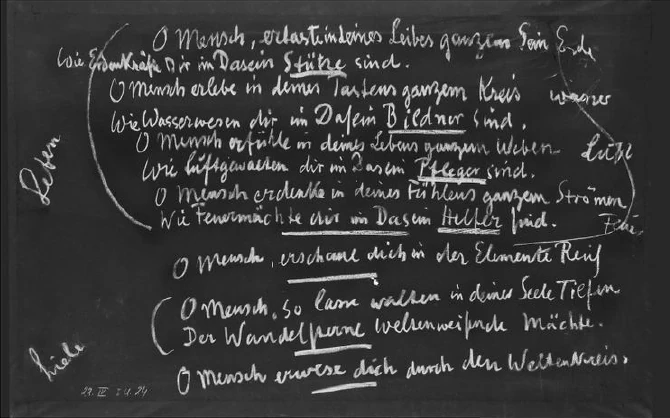 O Mensch, ertaste in deines Leibes ganzem Sein Erde
Wie Erdenkräfte Dir im Dasein Stütze sind.
O Mensch erlebe in deines Tastens ganzem Kreis wasser
Wie Wasserwesen dir im Dasein Bildner sind.
O Mensch erfühle in deines Lebens ganzem Weben
Wie Luftgewalten dir im Dasein Pfleger sind. Luft
O Mensch erdenke in deines Fühlens ganzem Strömen
Wie Feuermächte dir im Dasein Helfer sind.
Leben
O Mensch, erschaue dich in der Elemente Reich
O Mensch, so lasse walten in deiner Seele Tiefen
Der Wandelsterne weltenweisende Mächte.
O Mensch erwese dich durch den Weltenkreis.
Liebe